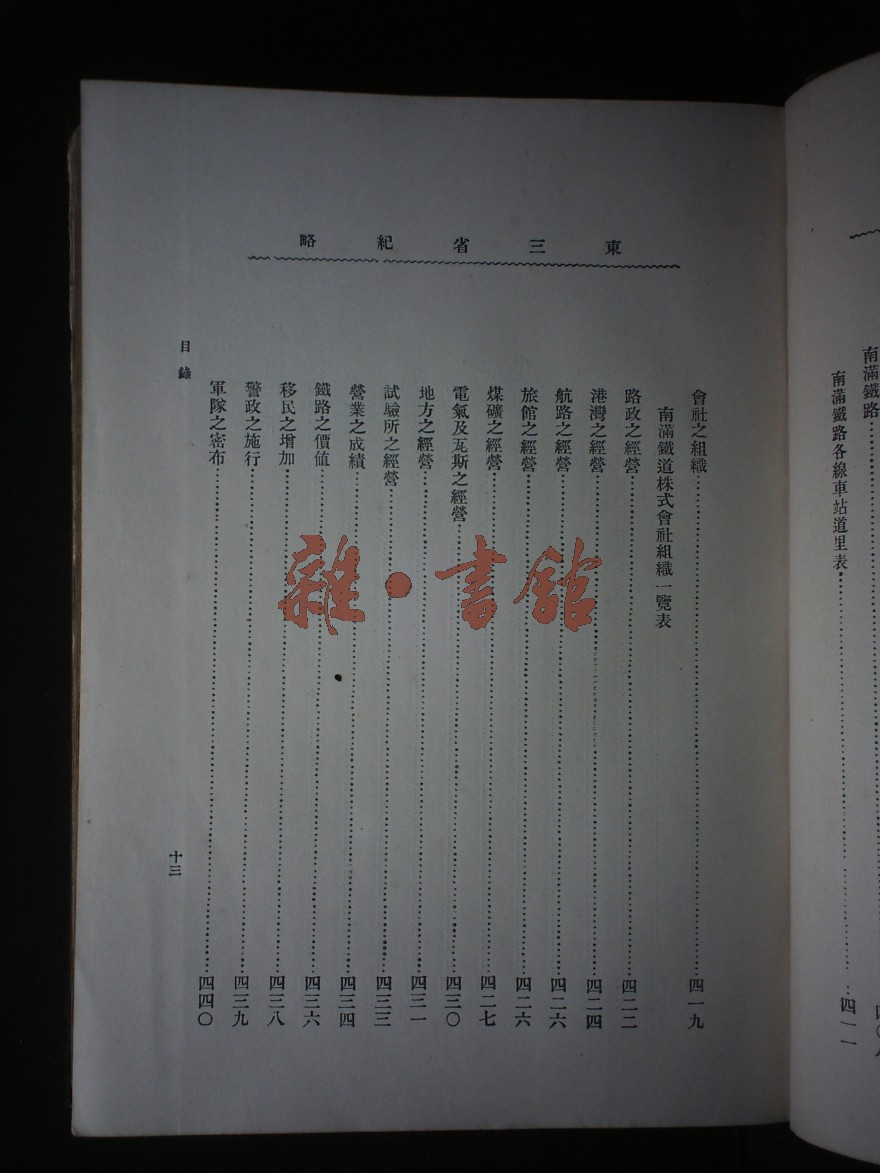 南滿鐵路
南滿鐵路各線車站道里表……四一一
東三省紀略
會社之組織……四一九
南滿鐵道株式會社組織一覽表
路政之經營……四二二
港灣之經營……四二四
航路之經營……四二六
旅館之經營……四二六
煤礦之經營……四二七
電氣及瓦斯之經營……四三〇
地方之經營……四三一
試驗所之經營……四三三
營業之成績……四三四
鐵路之價値……四三六
移民之增加……四三八
警政之施行……四三九
軍隊之密布……四四〇
目錄
十三
雜·書館